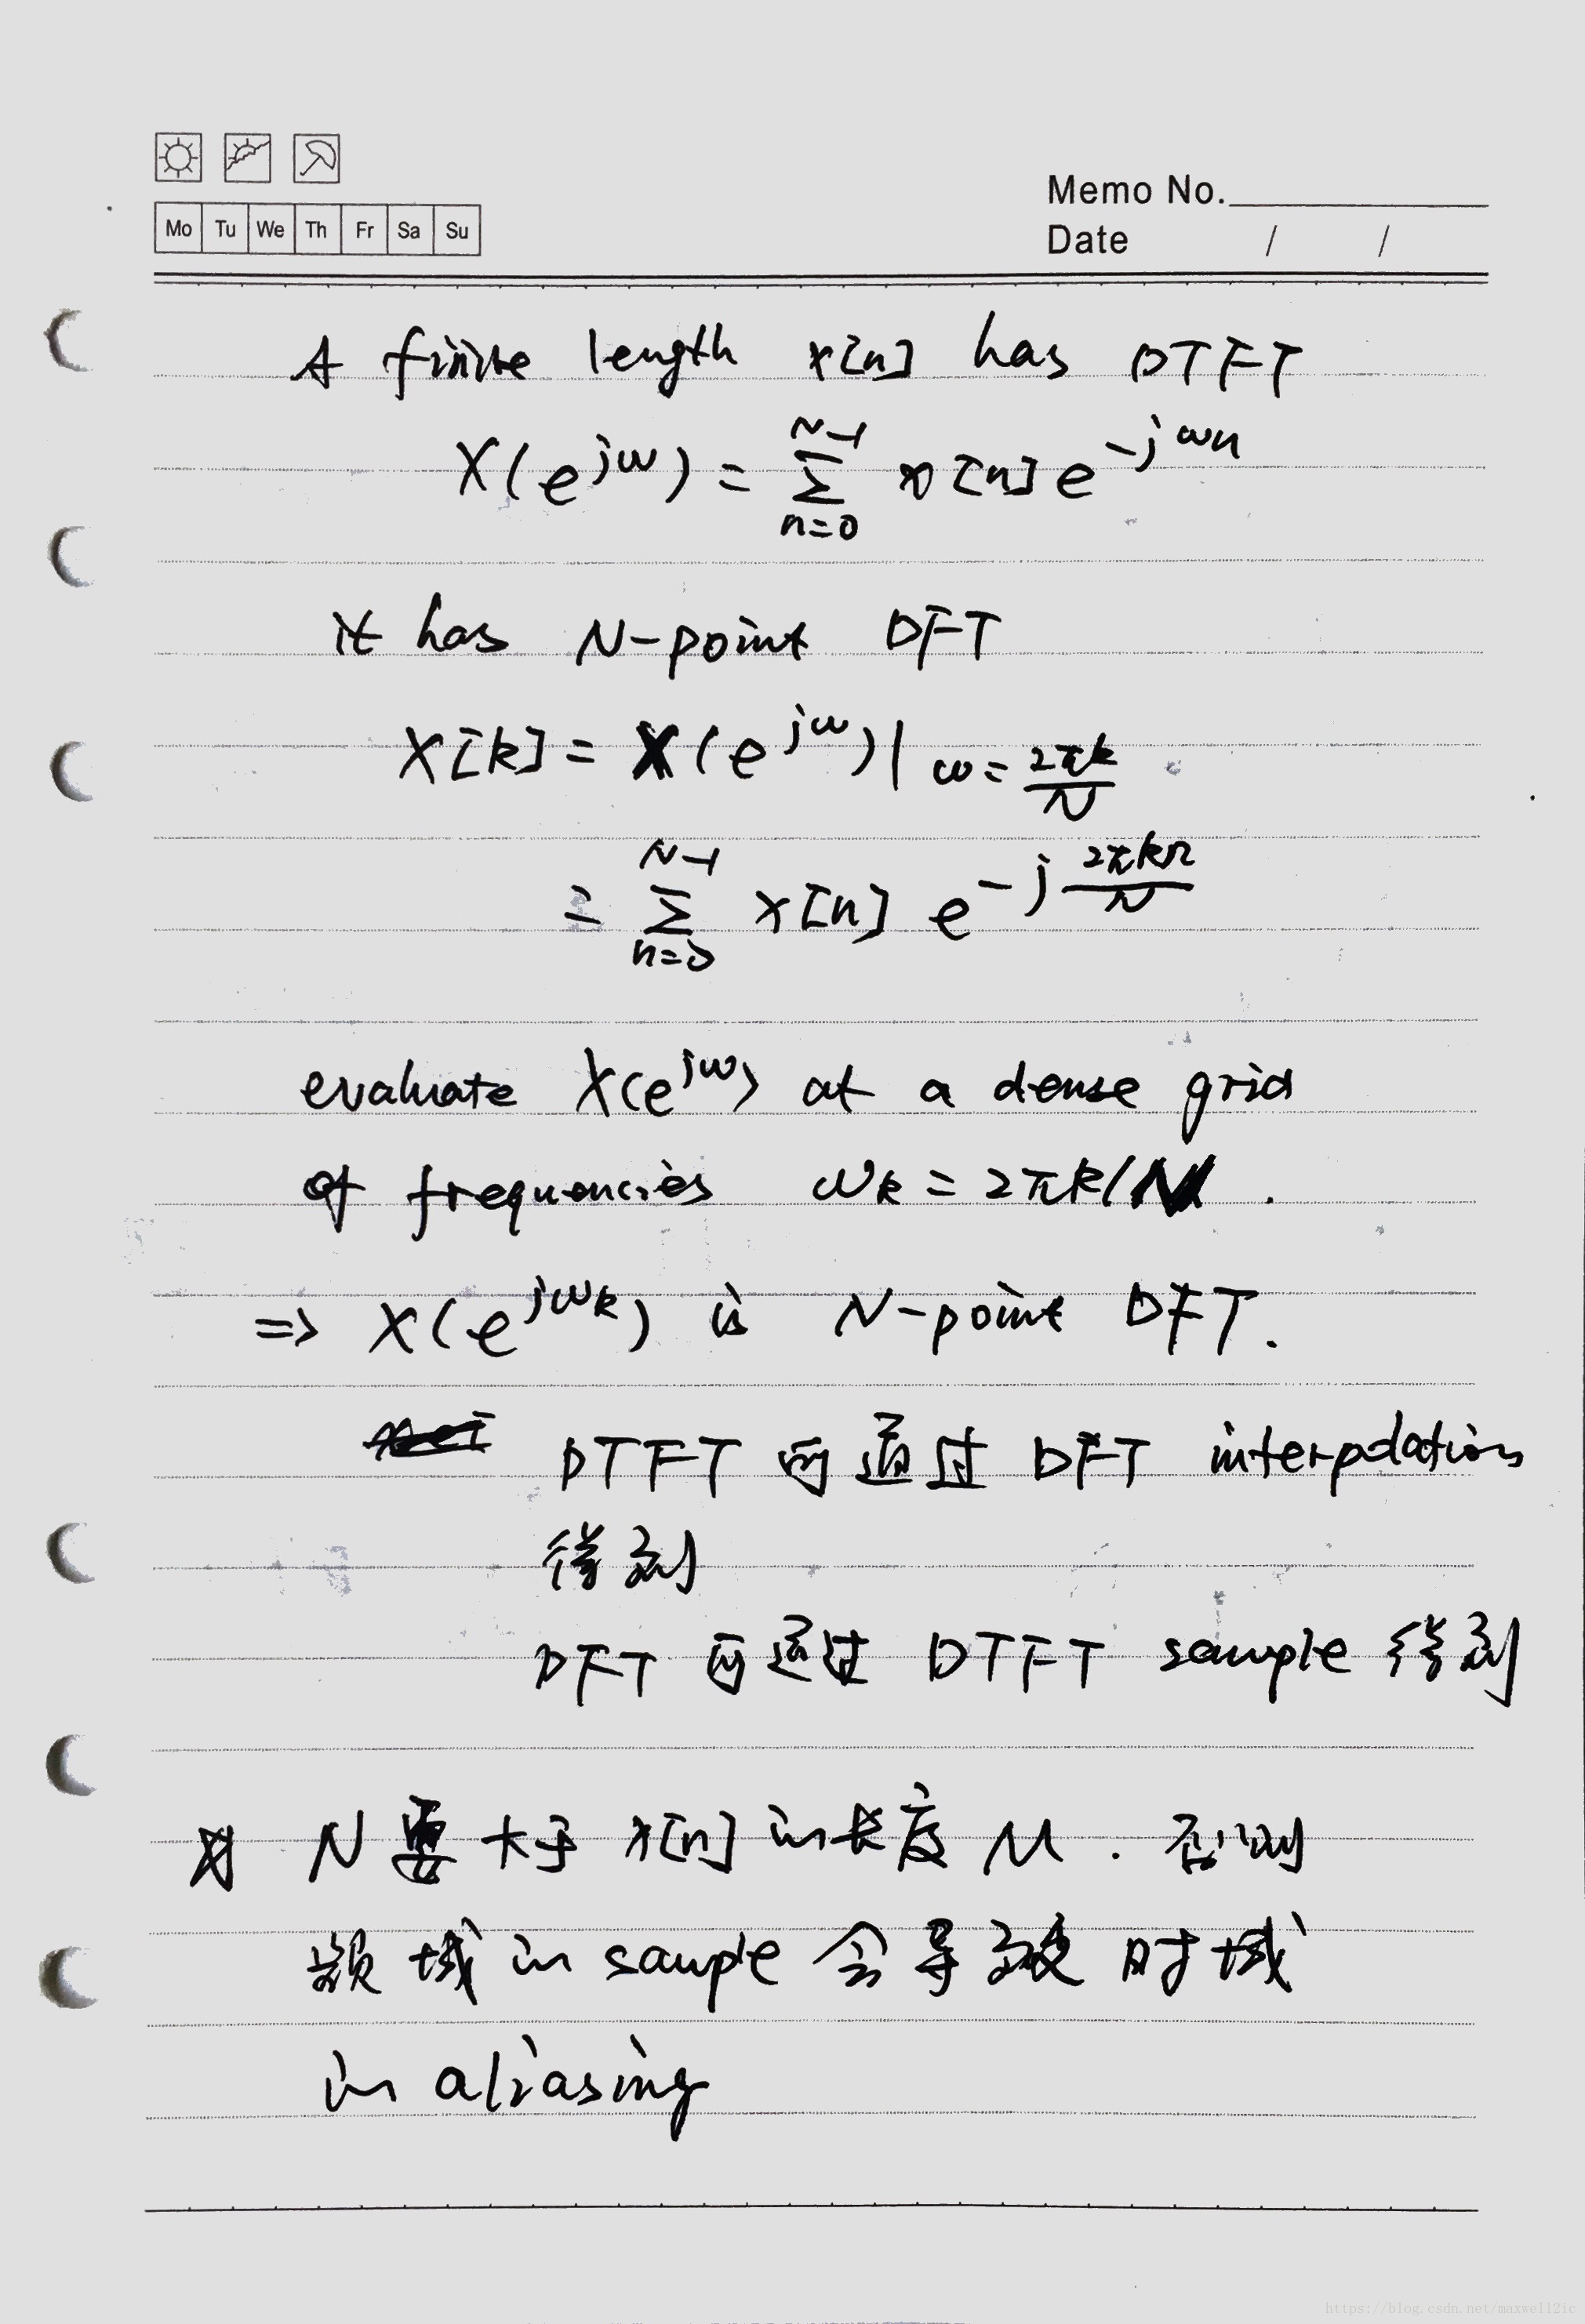 Mo Tu We Th Fr Sa Su
Memo No.
Date / /
A finite length x[n] has DTFT
X(e^{jω}) = \sum_{n=0}^{N-1} x[n] e^{-jωn}
it has N-point DFT
X[k] = X(e^{jω})|_{ω=\frac{2πk}{N}}
= \sum_{n=0}^{N-1} x[n] e^{-j\frac{2πkn}{N}}
evaluate X(e^{jω}) at a dense grid
of frequencies ω_k = 2πk/N .
=> X(e^{jω_k}) is N-point DFT.
DTFT 可通过 DFT interpolation
得到
DFT 可通过 DTFT sample 得到
N 要大于 x[n] in 长度 M . 否则
频域 in sample 会导致时域
in aliasing
https://blog.csdn.net/maxwell2ic